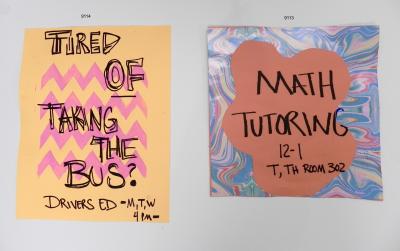 9114
TIRED
OF
TAKING
THE
BUS?
DRIVERS ED -M,T,W
4 PM-
9113
MATH
TUTORING
12-1
T, TH ROOM 302